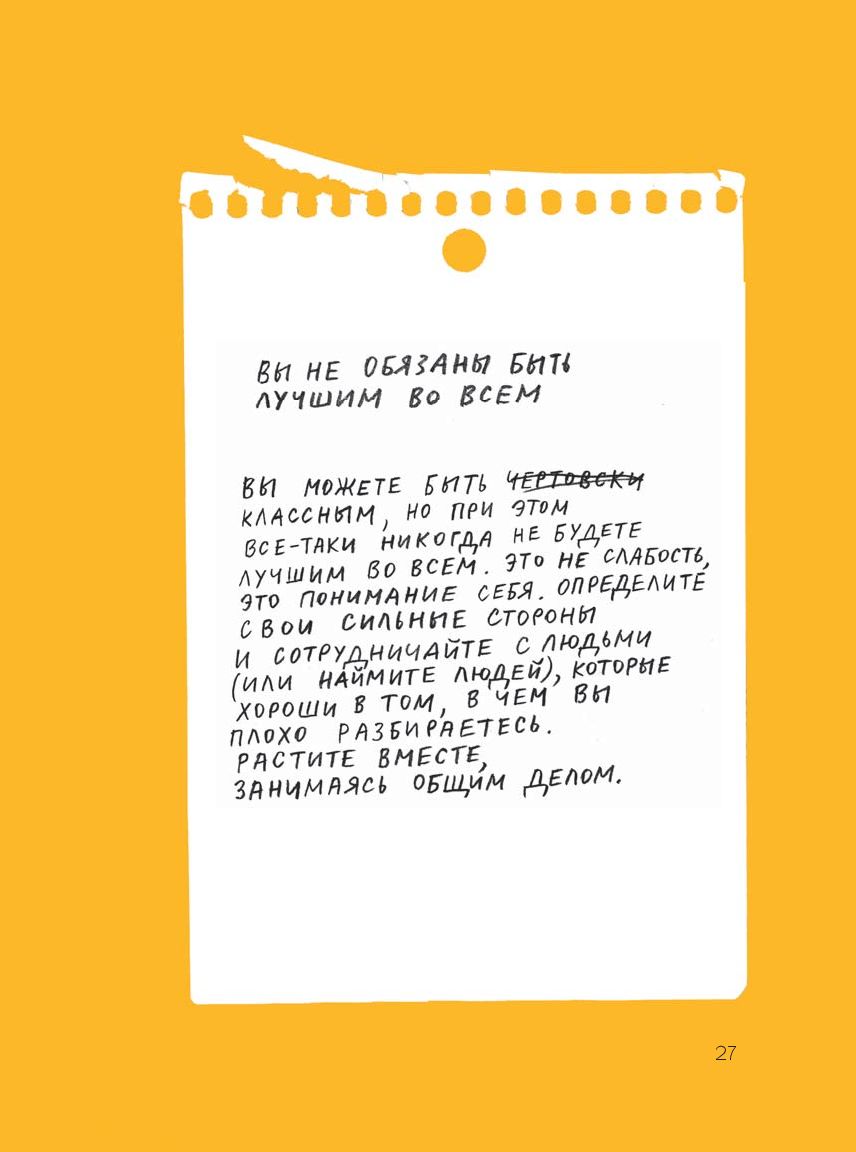 ВЫ НЕ ОБЯЗАНЫ БЫТЬ
ЛУЧШИМ ВО ВСЕМ
ВЫ МОЖЕТЕ БЫТЬ ЧЕРТОВСКИ
КЛАССНЫМ, НО ПРИ ЭТОМ
ВСЕ-ТАКИ НИКОГДА НЕ БУДЕТЕ
ЛУЧШИМ ВО ВСЕМ. ЭТО НЕ СЛАБОСТЬ,
ЭТО ПОНИМАНИЕ СЕБЯ. ОПРЕДЕЛИТЕ
СВОИ СИЛЬНЫЕ СТОРОНЫ
И СОТРУДНИЧАЙТЕ С ЛЮДЬМИ
(ИЛИ НАЙМИТЕ ЛЮДЕЙ), КОТОРЫЕ
ХОРОШИ В ТОМ, В ЧЕМ ВЫ
ПЛОХО РАЗБИРАЕТЕСЬ.
РАСТИТЕ ВМЕСТЕ,
ЗАНИМАЯСЬ ОБЩИМ ДЕЛОМ.
27